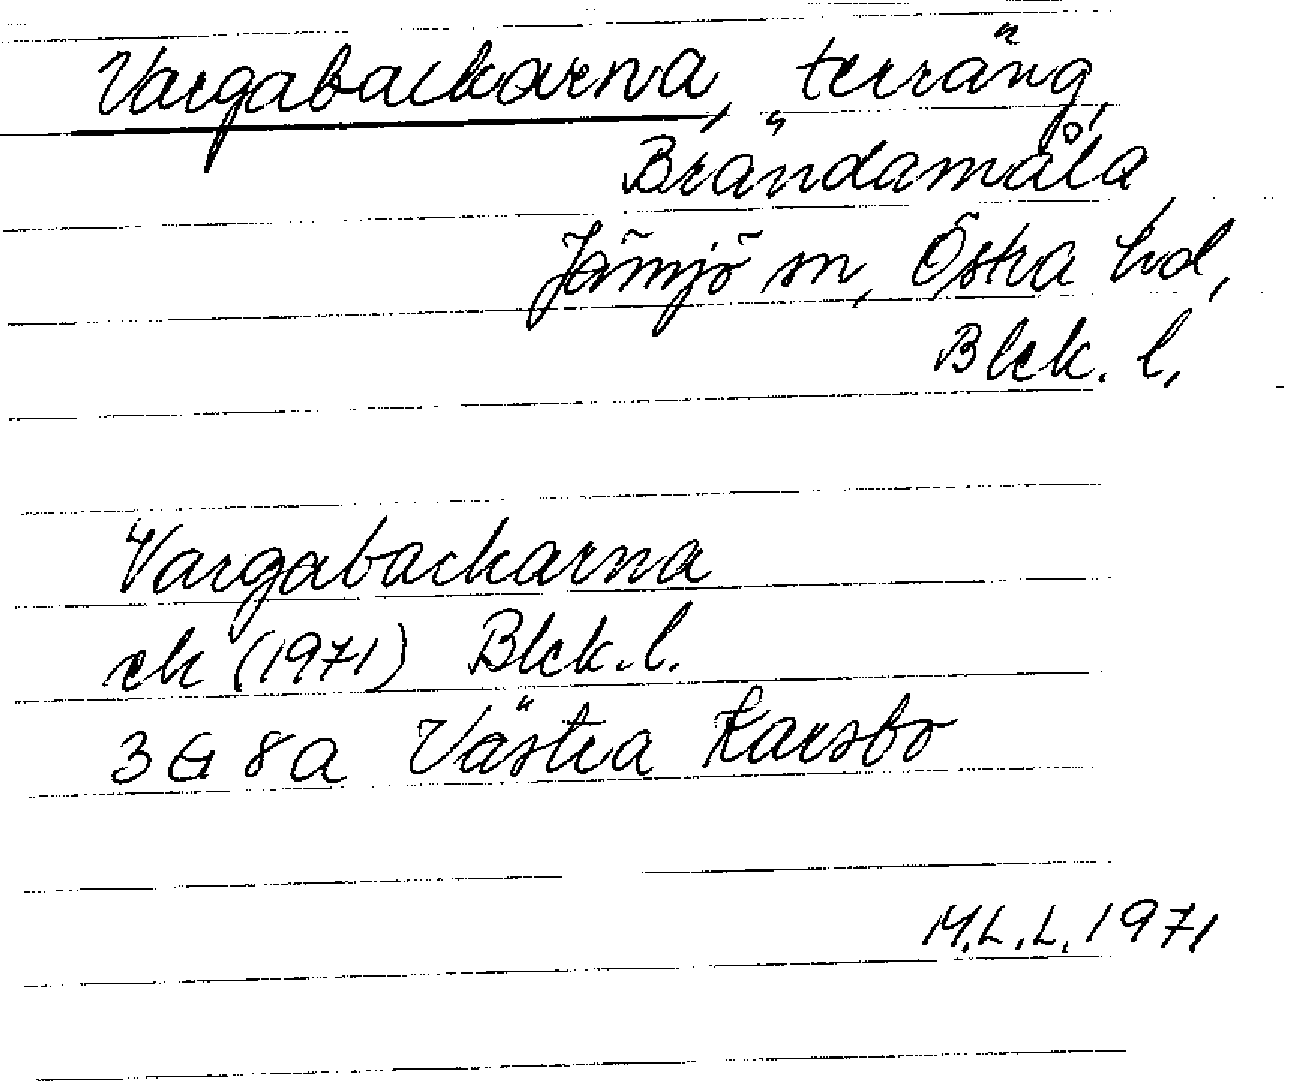 Vargabackarna, terräng,
Brändamåla
Jämjö sn, Östra hd,
Blek. l.
Vargabackarna
ek (1971) Blek. l.
3G 8a Västra Karsbo
M.L.L. 1971